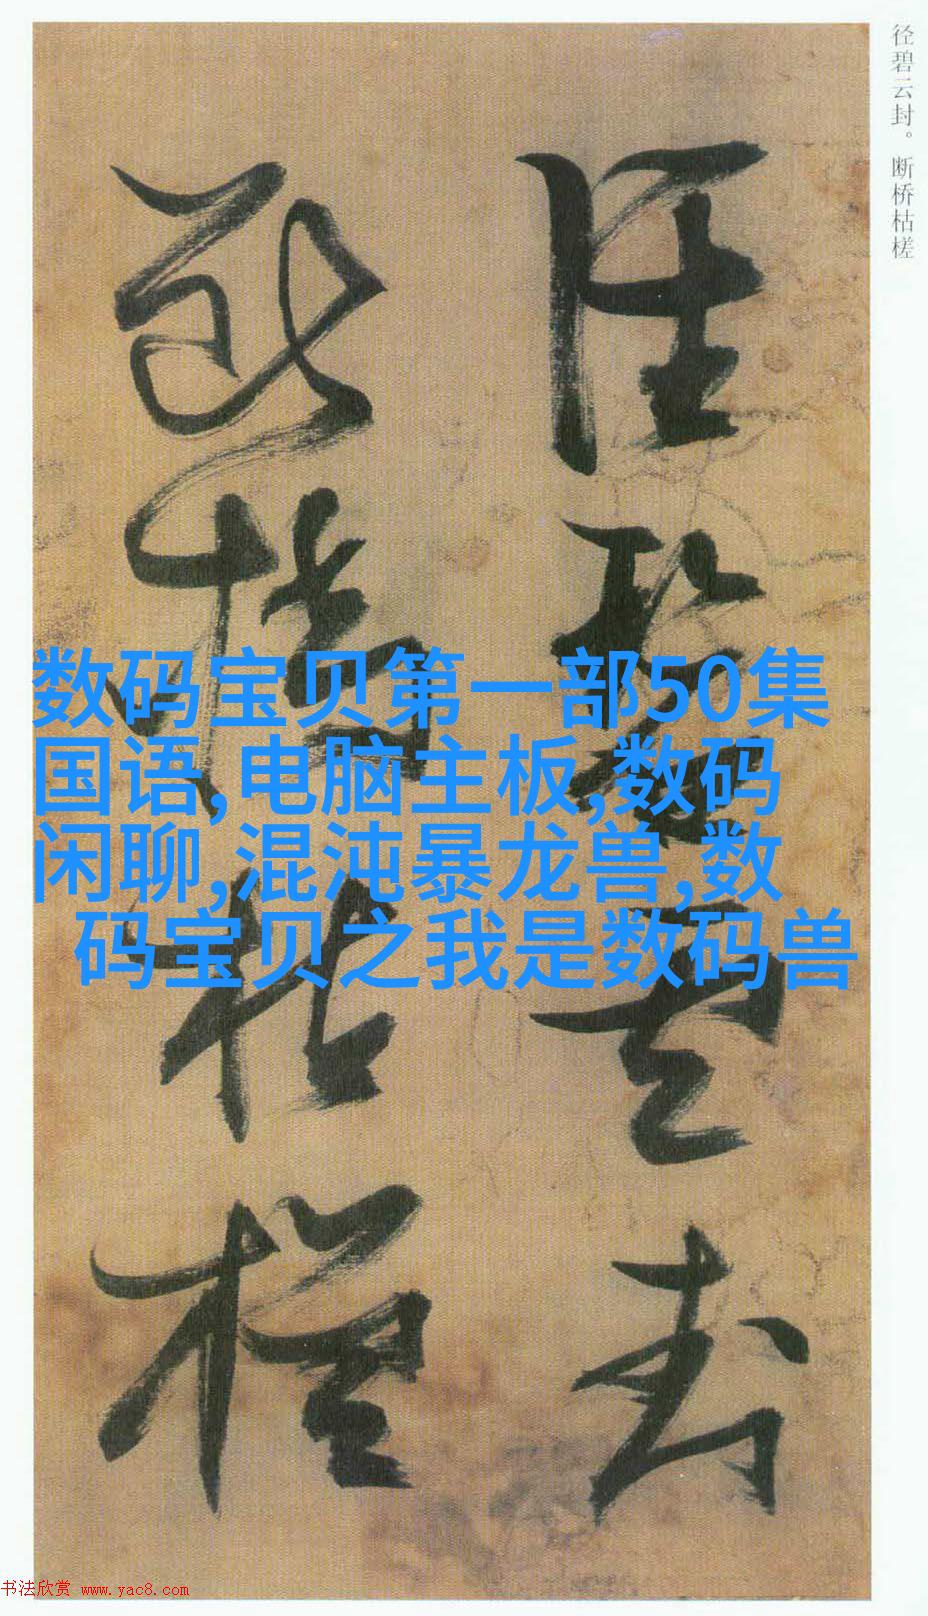 径碧云封。断桥枯槎
径碧云封
断桥枯槎
数码宝贝第一部50集
国语,电脑主板,数码
闲聊,混沌暴龙兽,数
码宝贝之我是数码兽
书法欣赏 www.yac8.com